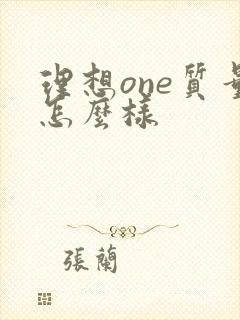 理想one质量
怎麼樣
張蘭